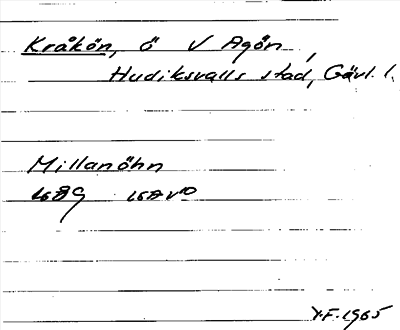 Kråkön, ö V Agön,
Hudiksvalls stad, Gävl. l.
Millanöhn
Y.F. 1965